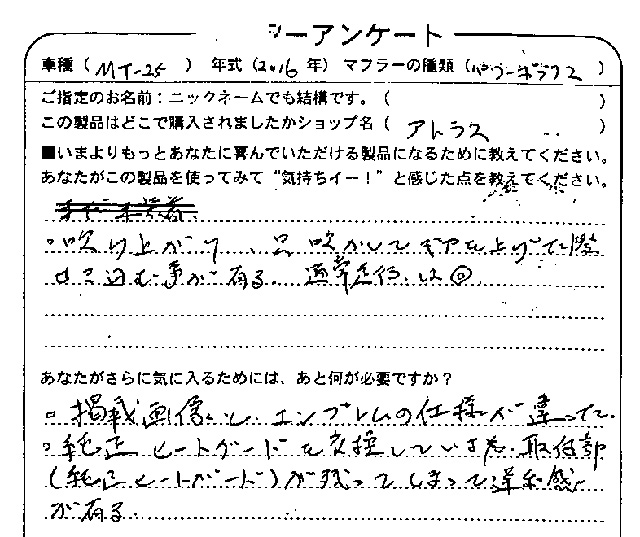 ーアンケート
車種（MT-25）年式（2016年）マフラーの種類（パワーボックス）
ご指定のお名前：ニックネームでも結構です。（ ）
この製品はどこで購入されましたかショップ名（アトラス ）
■いまよりもっとあなたに喜んでいただける製品になるために教えてください。
あなたがこの製品を使ってみて“気持ちイー！”と感じた点を教えてください。
・吹け上がり、 吹かしてギアを上げて
込む事が有る。通常走行は◎
あなたがさらに気に入るためには、あと何が必要ですか？
・掲載画像と、エンブレムの仕様が違ってた
・純正ヒートガードを交換している為、取付部
（純正ヒートガード）が残ってしまって違和感
が有る